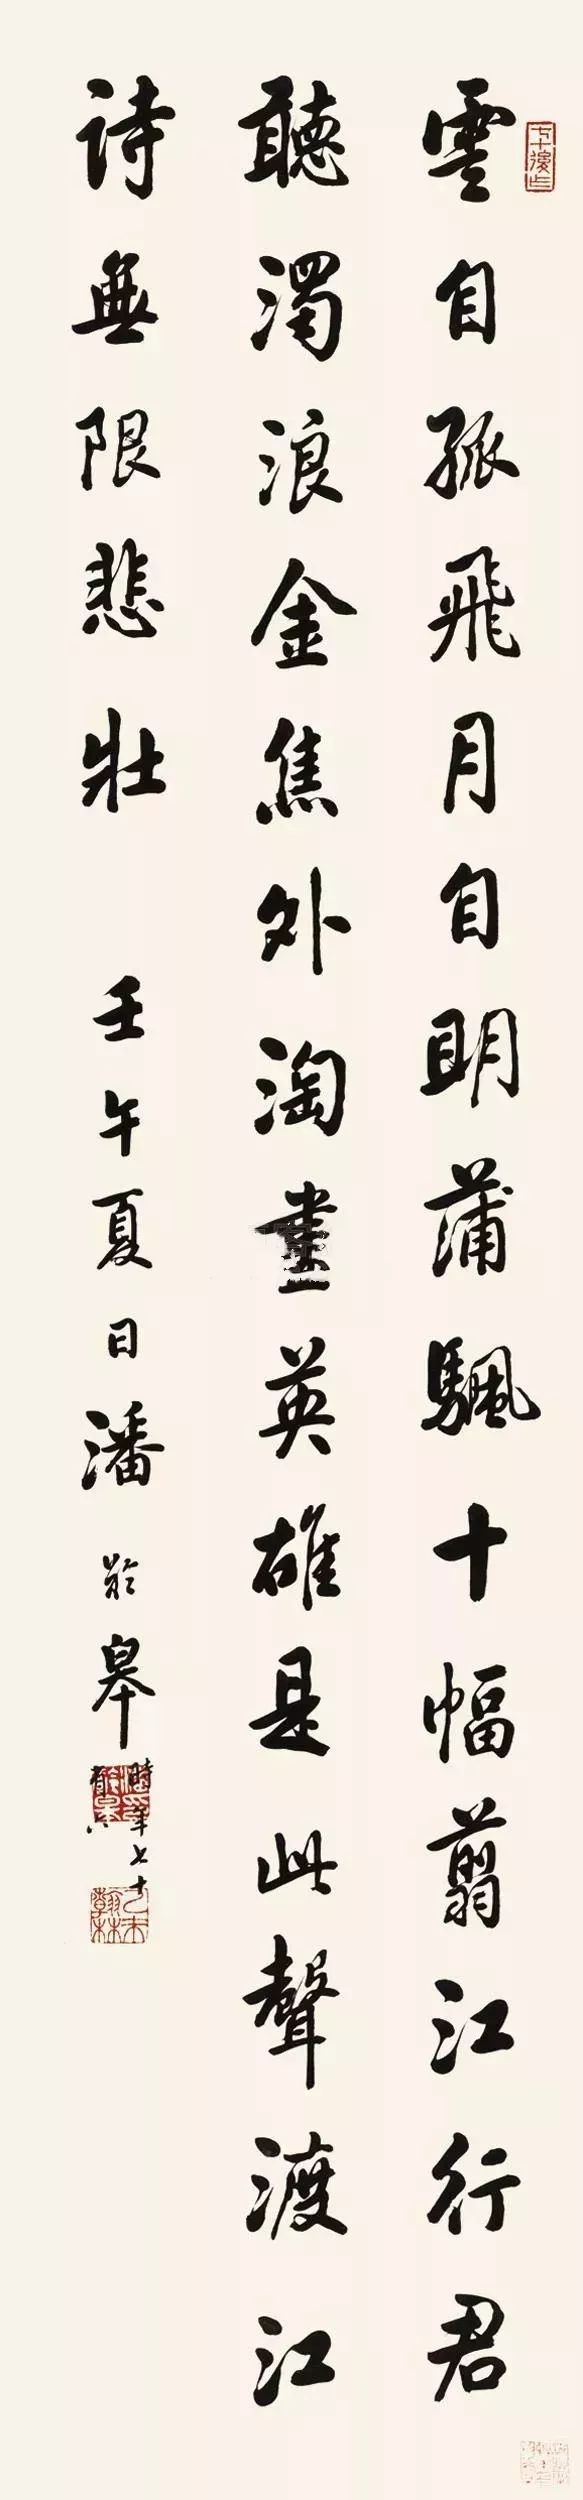 雲自孤飛月自明蒲颿十幅翦江行君
聽濁浪金焦外淘盡英雄是此聲渡江
詩無限悲壯
壬午夏日潘齡皋
時年七十
有六
七十後作